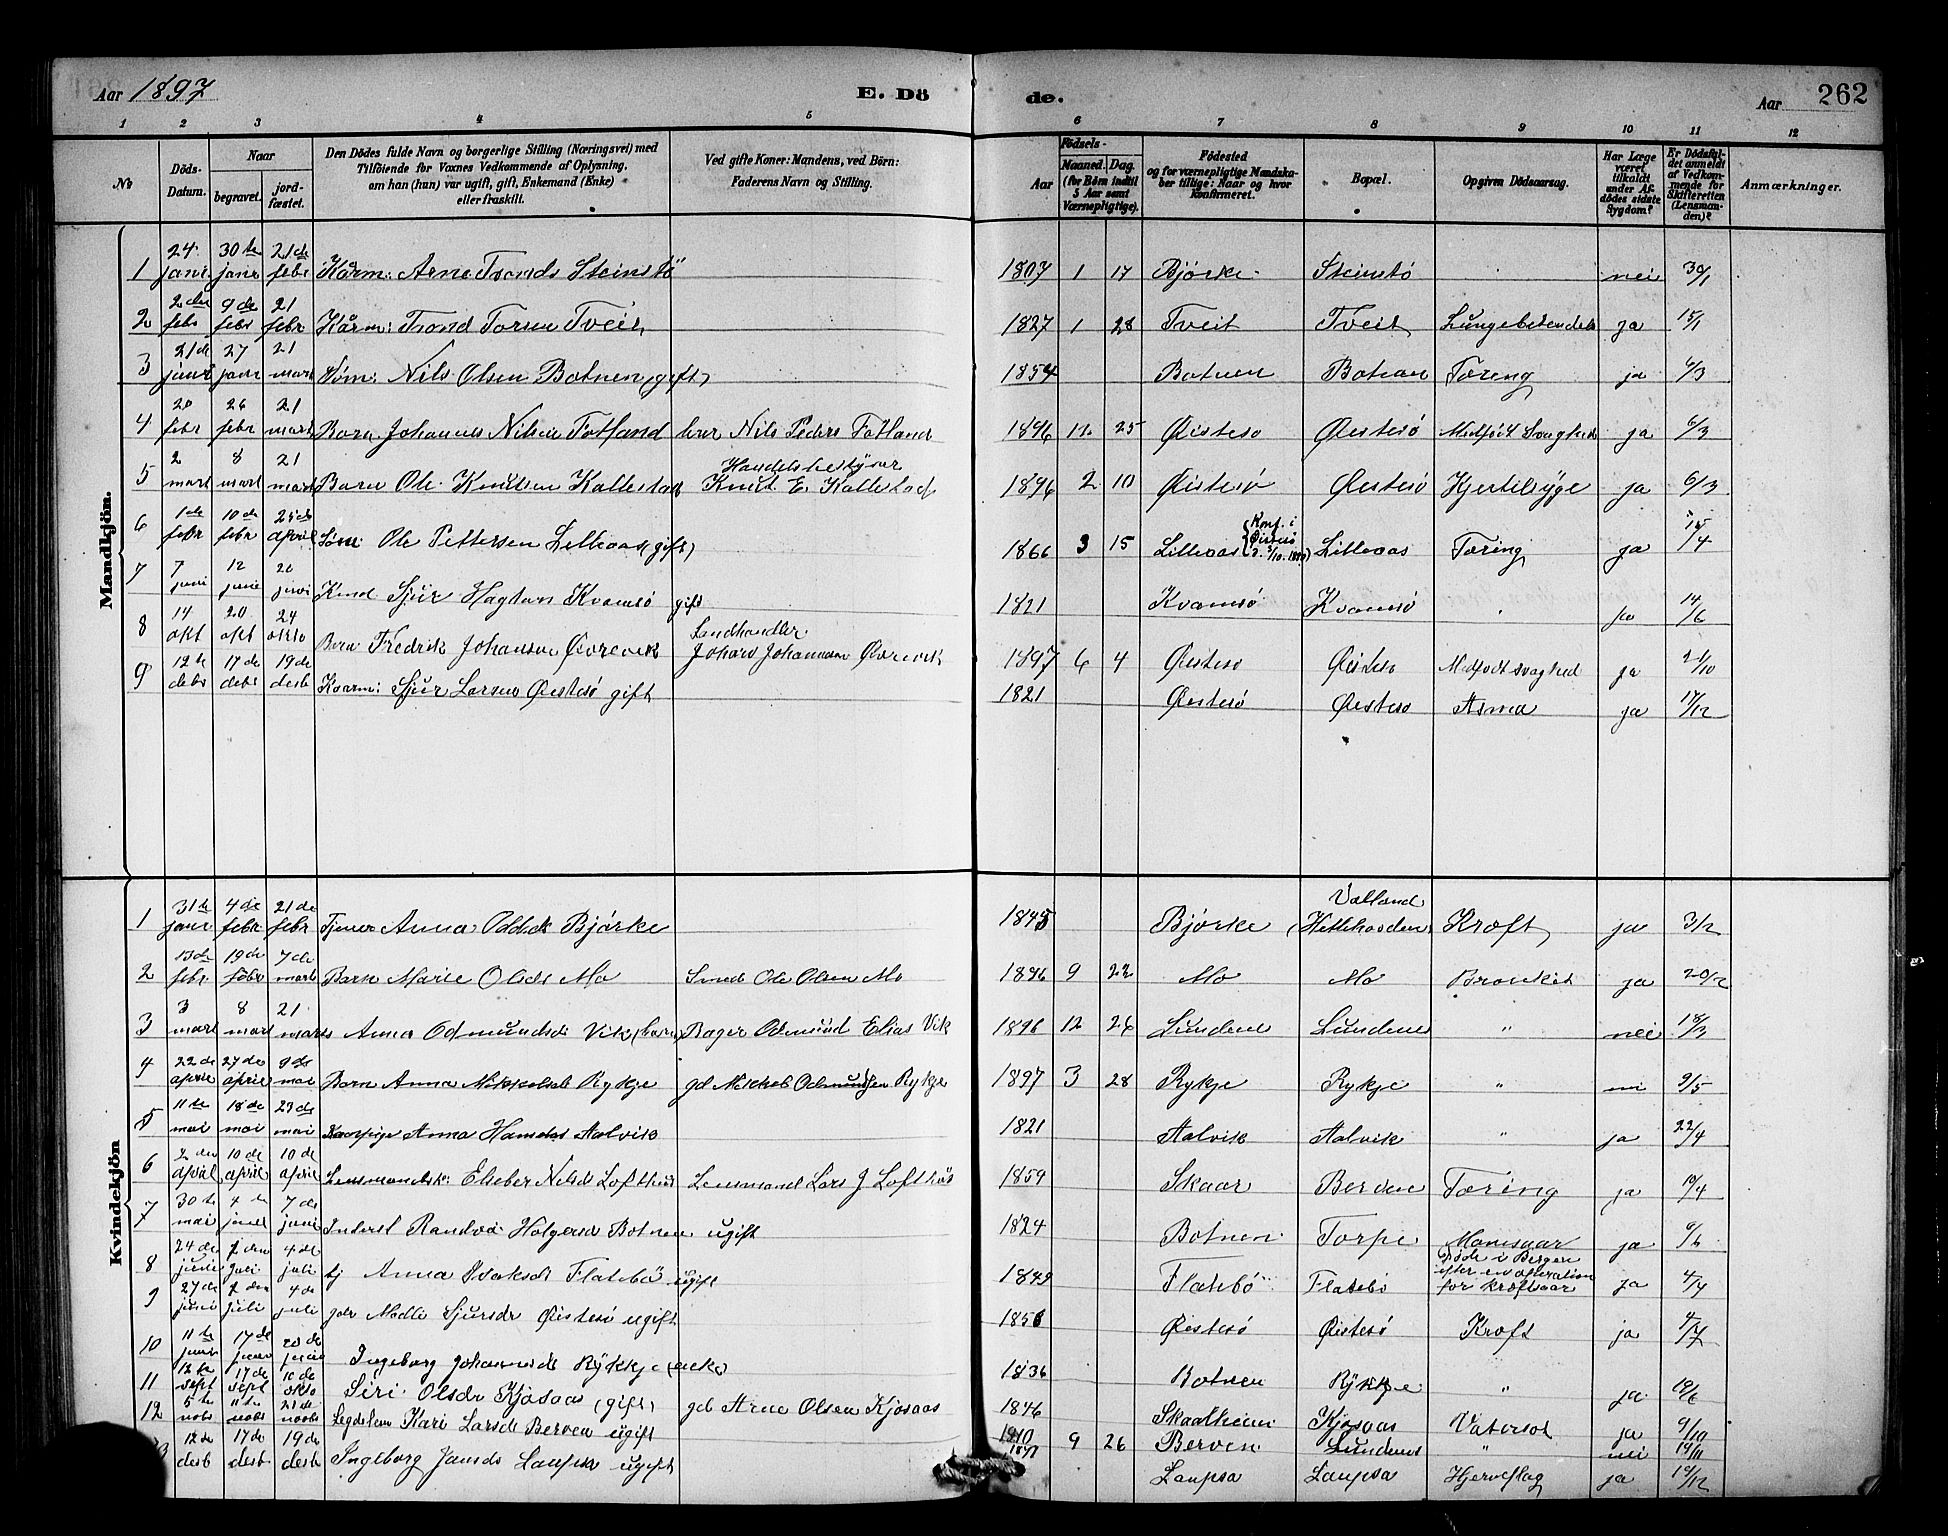 Aar 1897
E. Dö
de.
Aar 262
1 2 3 4 5 6 7 8 9 10 11 12
No
Döds-Datum.
Naar
begravet.
jord-fæstet.
Den Dödes fulde Navn og borgerlige Stilling (Næringsvei) med
Tilföiende for Voxnes Vedkommende af Oplysning,
om han (hun) var ugift, gift, Enkemand (Enke)
eller fraskilt.
Ved gifte Koner: Mandens, ved Börn:
Faderens Navn og Stilling.
Födsels-
Aar
Maaned. Dag.
(for Börn indtil
5 Aar samt
Værnepligtige).
Födested
og for værnepligtige Mandska-
ber tillige: Naar og hvor
Konfirmeret.
Bopæl.
Opgiven Dödsaarsag.
Har Læge
været
tilkaldt
under Af-
dödes sidste
Sygdom?
Er Dödsfal-
det anmeldt
af Vedkom-
mende for
Skifteretten
(Lensman-
den)?
Anmærkninger.
Mandkjön.
1 24 janr 30te janr 21de febr Kårm: Arne Tronds Steinstö 1807 1 17 Bjørke Steinstö nei 30/1
2 2den febr 9de febr 21 febr Kårm: Trond Torsen Tveit 1827 1 28 Tveit Tveit ja 15/1
3 21de janr 27 janr 21 mart Nils Olsen Botnen gift 1854 Botnen Botnen Tæring ja 4/3
4 20 febr 26 febr 21 mart Barn Johannes Nilsen Fotland Nils Peders Fotland 1896 11 25 Øistesø Øistesø Medfödt Svaghed ja 6/3
5 2 mart 8 mart 21 mart Barn Ole Knutsen Kallestad Handelsbestyrer Knut E. Kallestad 1896 2 10 Øistesø Øistesø Hjertesyge ja 6/3
6 1de febr 10de febr 25de april Ole Pettersen Lilleaas (gift) 1866 3 15 Lilleaas (Konf. i Øistesö Lilleaas Tæring ja
7 7 juni 12 juni 20 juni Sjur Kvamsö gift 1821 Kvamsö Kvamsö ja 14/6
8 14 okt 20 okt 24 okto Barn Fredrik Johansen Øvrevik Landhandler Johans Johannesen Øvrevik 1897 6 4 Øistesø Øistesø Medfødt svaghed ja
9 12te debr 17de debr 19de desb Kaarm: Sjur Larsen Øistesö gift 1821 Øistesö Øistesø Asma ja 17/12
Kvindekjön
1 31te janr 4de febr 21de febr Tjener Anna Bjørke 1845 Bjørke Valland (Hetlehovden) Kræft ja 3/2
2 13de febr 19de febr 7de mart Barn Marie Olsdr Mo Smed Ole Olsen Mo 1896 9 22 Mo Mo Bronkit ja 20/2
3 3 mart 8 mart 21 mart Anna Odmundsdr Vik (barn) Bager Odmund Elias Vik 1896 12 26 Lundene Lundene " nei 18/3
4 22de april 27de april 9de mai Barn Anna Rykje gd Mikkel Odmundsen Rykje 1897 3 28 Rykje Rykje " nei 9/5
5 11te mai 18de mai 23de mai Anna Hansdr Aalvik 1821 Aalvik Aalvik " ja 22/4
6 2den april 10de april 10de april Elseber Nilsdr Lofthus Lensmand Lars J Lofthus 1859 Skaar Berden Tæring ja 10/4
7 30te mai 4te juni 7de juni Inderst Randvei Holgersdr Botnen ugift 1824 Botnen Torpe ja 9/6
8 24de juni 2den juli 4de juli Anna Flatebö ugift 1849 Flatebö Flatebö Døde i Bergen efter en operation for kræftsaar ja
9 27de juni 2den juli 4de juli Sjursdr Øistesö ugift 1856 Øistesö Øistesö Kræft ja
10 11te juni 17de juni 20de juni Ingeborg Johannesdr Rykkje (enke) 1836 Botnen Rykkje " ja 19/6
11 12te sept 17de sept 10de okto Siri Olsdr Kjosaas (gift) gb Arne Olsen Kjosaas 1846 Skaalheim Kjosaas Vatersot ja 9/10
12 5te nobr 11te nobr 21de noobr Kari Larsdr Berven ugift 1810 Berven Lundene " nei 19/11
12de desb 17de desb 19de desb Ingeborg Jansdr Laupsa ugift 1897 9 26 Laupsa Laupsa Hjerteslag ja 19/12